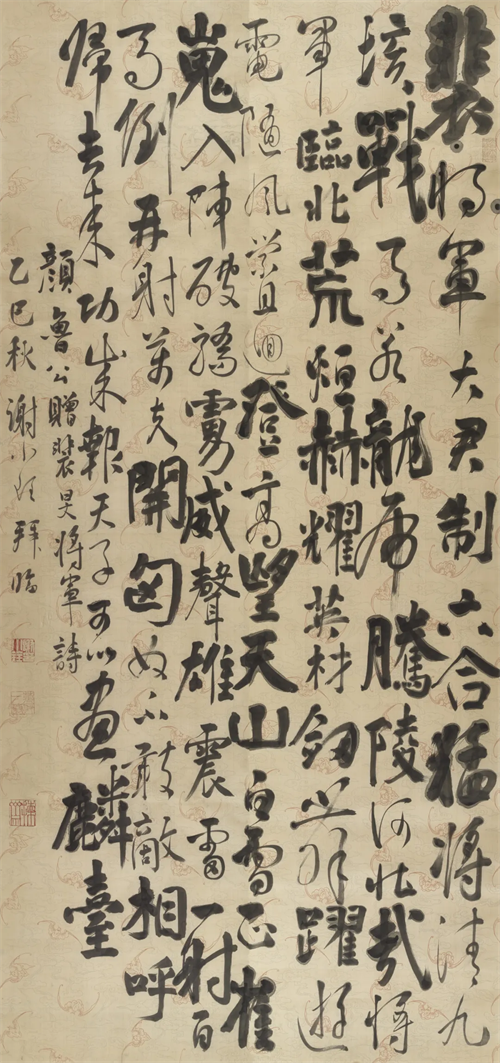 裴將軍大君制六合猛將清九
垓戰馬若龍虎騰陵何壯哉將
軍臨北荒烜赫耀英材劍舞躍遊
電隨風縈且迴登高望天山白雪正崔
嵬入陣破驕虜威聲雄震雷一射百
馬倒再射萬夫開匈奴不敢敵相呼
歸去來功成報天子可以畫麟臺
顏魯公贈裴旻將軍詩
乙巳秋謝小拜臨